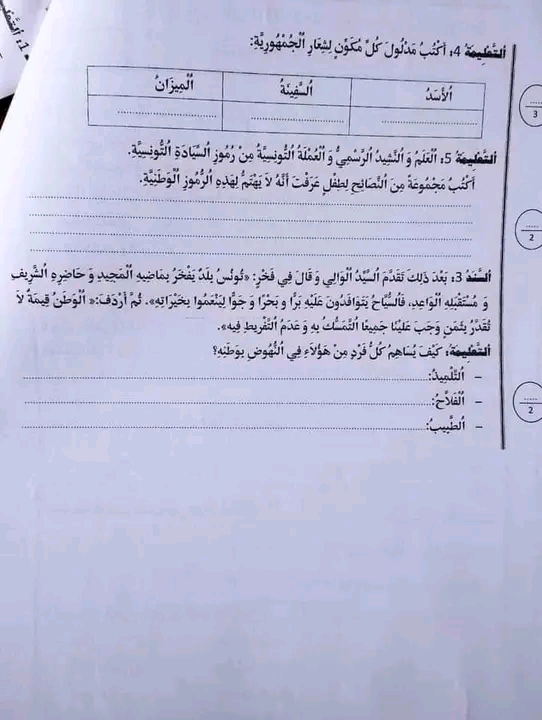 التعليمة 4: أَكْتُبُ مَدْلُولَ كُلِّ مُكَوِّنٍ لِشِعَارِ الْجُمْهُورِيَّةِ:
اَلْأَسَدُ اَلسَّفِينَةُ اَلْمِيزَانُ
.......... .......... ..........
3
التعليمة 5: اَلْعَلَمُ وَ النَّشِيدُ الرَّسْمِيُّ وَ الْعُمْلَةُ التُّونِسِيَّةُ مِنْ رُمُوزِ السِّيَادَةِ التُّونِسِيَّةِ.
أَكْتُبُ مَجْمُوعَةً مِنَ النَّصَائِحِ لِطِفْلٍ عَرَفْتَ أَنَّهُ لَا يَهْتَمُّ لِهَذِهِ الرُّمُوزِ الْوَطَنِيَّةِ.
..........
..........
..........
..........
2
السند 3: بَعْدَ ذَلِكَ تَقَدَّمَ السَّيِّدُ الْوَالِي وَ قَالَ فِي فَخْرٍ: «تُونُسُ بَلَدٌ يَفْخَرُ بِمَاضِيهِ الْمَجِيدِ وَ حَاضِرِهِ الشَّرِيفِ
وَ مُسْتَقْبَلِهِ الْوَاعِدِ، فَالسُّيَّاحُ يَتَوَافَدُونَ عَلَيْهِ بَرًّا وَ بَحْرًا وَ جَوًّا لِيَنْعَمُوا بِخَيْرَاتِهِ». ثُمَّ أَرْدَفَ: «الْوَطَنُ قِيمَةٌ لَا
تُقَدَّرُ بِثَمَنٍ وَجَبَ عَلَيْنَا جَمِيعًا التَّمَسُّكُ بِهِ وَ عَدَمُ التَّفْرِيطِ فِيهِ».
التعليمة: كَيْفَ يُسَاهِمُ كُلُّ فَرْدٍ مِنْ هَؤُلَاءِ فِي النُّهُوضِ بِوَطَنِهِ؟
- اَلتِّلْمِيذُ:..........
- اَلْفَلَّاحُ:..........
- اَلطَّبِيبُ:..........
2